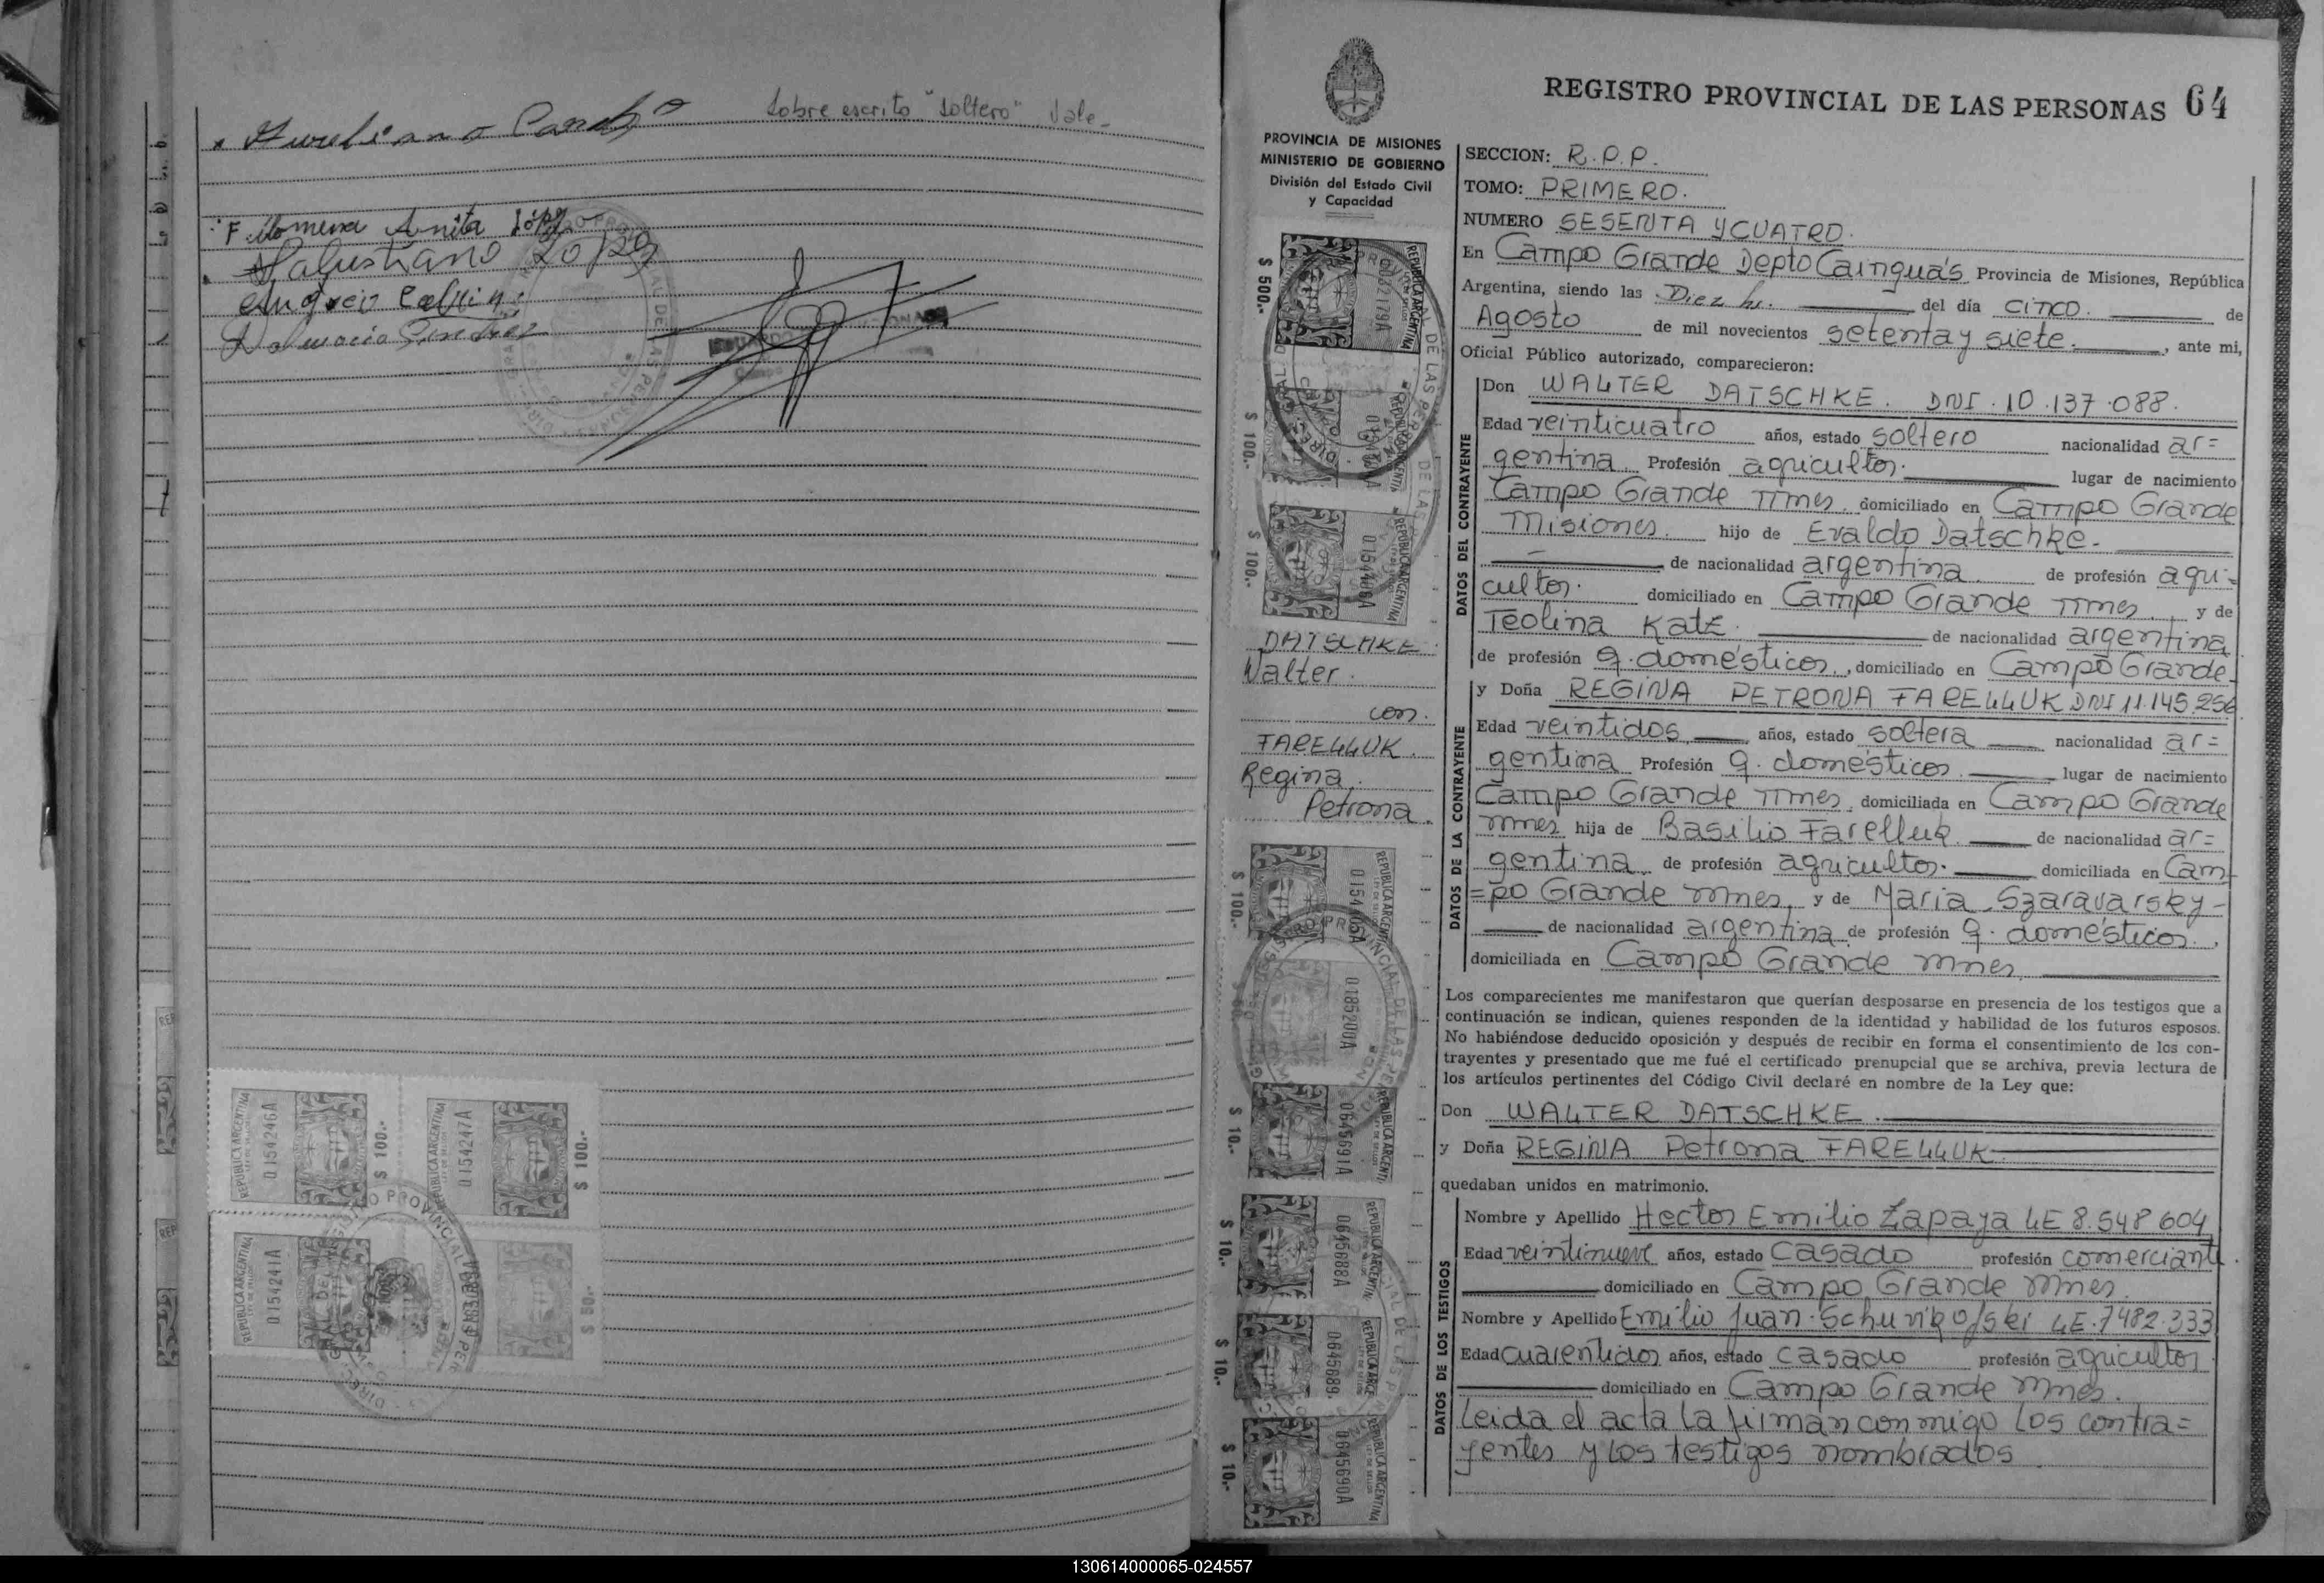 Aureliano Sobre escrito "soltero" Vale-
Filomena Anita López
Salustiano
REPUBLICA ARGENTINA
0154246A
$ 100.-
REPUBLICA ARGENTINA
0154247A
$ 100.-
REPUBLICA ARGENTINA
0154241A
$ 50.-
PROVINCIA DE MISIONES
MINISTERIO DE GOBIERNO
División del Estado Civil
y Capacidad
$ 500.-
$ 100.-
$ 100.-
DATSCHKE
Walter.
con.
FARELLUK.
Regina.
Petrona.
$ 100.-
0185200A
$ 10.-
0645691A
$ 10.-
0645688A
$ 10.-
0645689
$ 10.-
0645690A
REGISTRO PROVINCIAL DE LAS PERSONAS 64
SECCION: R.P.P.
TOMO: PRIMERO.
NUMERO SESENTA Y CUATRO.
En Campo Grande Depto Cainguás Provincia de Misiones, República
Argentina, siendo las Diez hs. del día CINCO. de
Agosto de mil novecientos setenta y siete. , ante mi,
Oficial Público autorizado, comparecieron:
DATOS DEL CONTRAYENTE
Don WALTER DATSCHKE. DNI. 10.137.088.
Edad veinticuatro años, estado soltero nacionalidad ar=
gentina Profesión agricultor. lugar de nacimiento
Campo Grande Mnes. domiciliado en Campo Grande
Misiones. hijo de Evaldo Datschke.
de nacionalidad argentina de profesión agri=
cultor. domiciliado en Campo Grande Mnes. y de
Teolina Katz. de nacionalidad argentina
de profesión q. domésticos, domiciliado en Campo Grande-
DATOS DE LA CONTRAYENTE
y Doña REGINA PETRONA FARELLUK DNI 11.145.256
Edad veintidos años, estado soltera nacionalidad ar=
gentina Profesión q. domésticos. lugar de nacimiento
Campo Grande Mnes. domiciliada en Campo Grande
Mnes hija de Basilio Farelluk. de nacionalidad ar=
gentina de profesión agricultor. domiciliada en Cam
=po Grande Mnes. y de Maria Szaravarsky-
de nacionalidad argentina de profesión q. domésticos.,
domiciliada en Campo Grande Mnes.
Los comparecientes me manifestaron que querían desposarse en presencia de los testigos que a
continuación se indican, quienes responden de la identidad y habilidad de los futuros esposos.
No habiéndose deducido oposición y después de recibir en forma el consentimiento de los con-
trayentes y presentado que me fué el certificado prenupcial que se archiva, previa lectura de
los artículos pertinentes del Código Civil declaré en nombre de la Ley que:
Don WALTER DATSCHKE.
y Doña REGINA Petrona FARELLUK.
quedaban unidos en matrimonio.
DATOS DE LOS TESTIGOS
Nombre y Apellido Hector Emilio Zapaya LE 8.548 604
Edad veintinueve años, estado casado profesión comerciante.
domiciliado en Campo Grande Mnes.
Nombre y Apellido Emilio Juan Schuvikofski LE.7482.333
Edad cuarentidos años, estado casado profesión agricultor.
domiciliado en Campo Grande Mnes.
Leida el acta la firman conmigo los contra=
yentes y los testigos nombrados
130614000065-024557